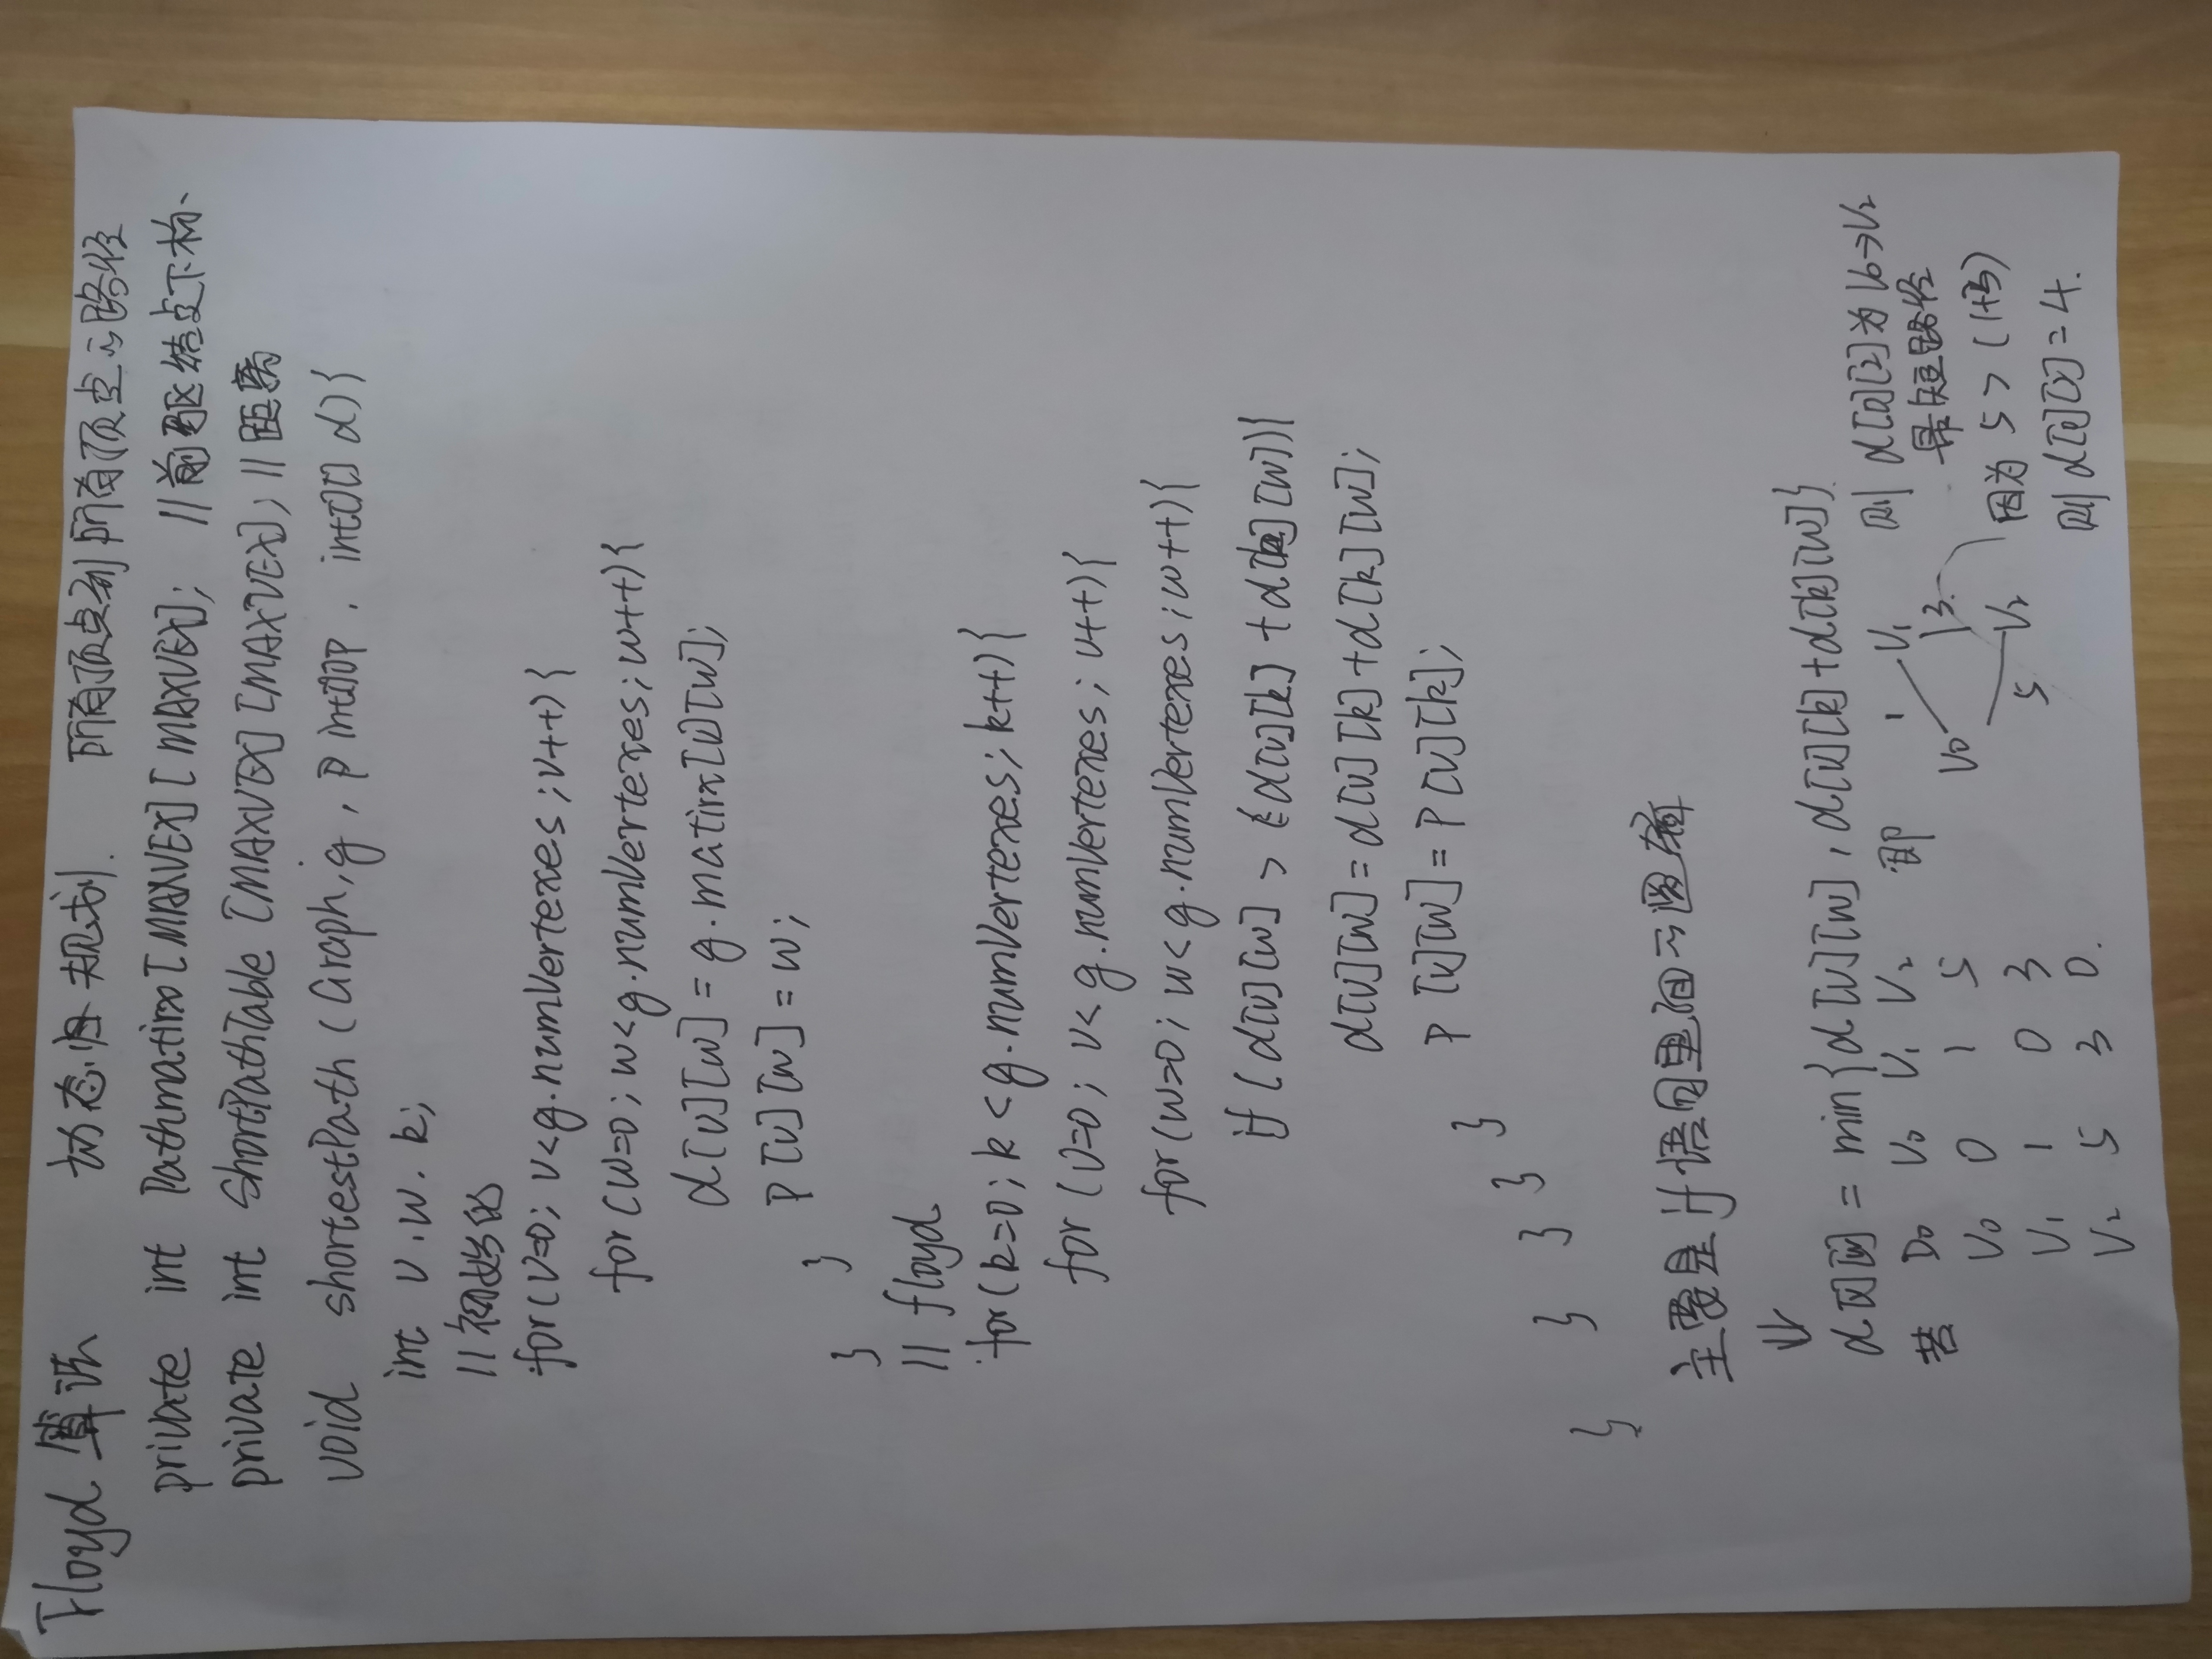 Floyd 算法 动态规划. 所有顶点到所有顶点的路径
private int Pathmatirx[MAXVEX][MAXVEX]; //前驱结点下标.
private int ShortPathTable[MAXVEX][MAXVEX]; //距离
void shortestPath(Graph, g, P int[][]P, int[][] d){
int v.w.k;
//初始化
for(v=0; v<g.numVertexes; v++){
for(w=0; w<g.numVertexes; w++){
d[v][w] = g.matirx[v][w];
P[v][w] = w;
}
}
// floyd
for(k=0; k<g.numVertexes; k++){
for(v=0; v<g.numVertexes; v++){
for(w=0; w<g.numVertexes; w++){
if(d[v][w] > (d[v][k] + d[k][w])){
d[v][w] = d[v][k] + d[k][w];
P[v][w] = P[v][k];
}
}
}
}
}
主要是 if 语句里面的逻辑
⇓
d[v][w] = min{d[v][w], d[v][k]+d[k][w]}.
若 D0 V0 V1 V2 即 V1 则 d[0][2]为V0→V2
V0 0 1 5 1 3. 最短路径
V1 1 0 3 V0 V2 因为 5 > (1+3)
V2 5 3 0. 5 则 d[v][w] = 4.